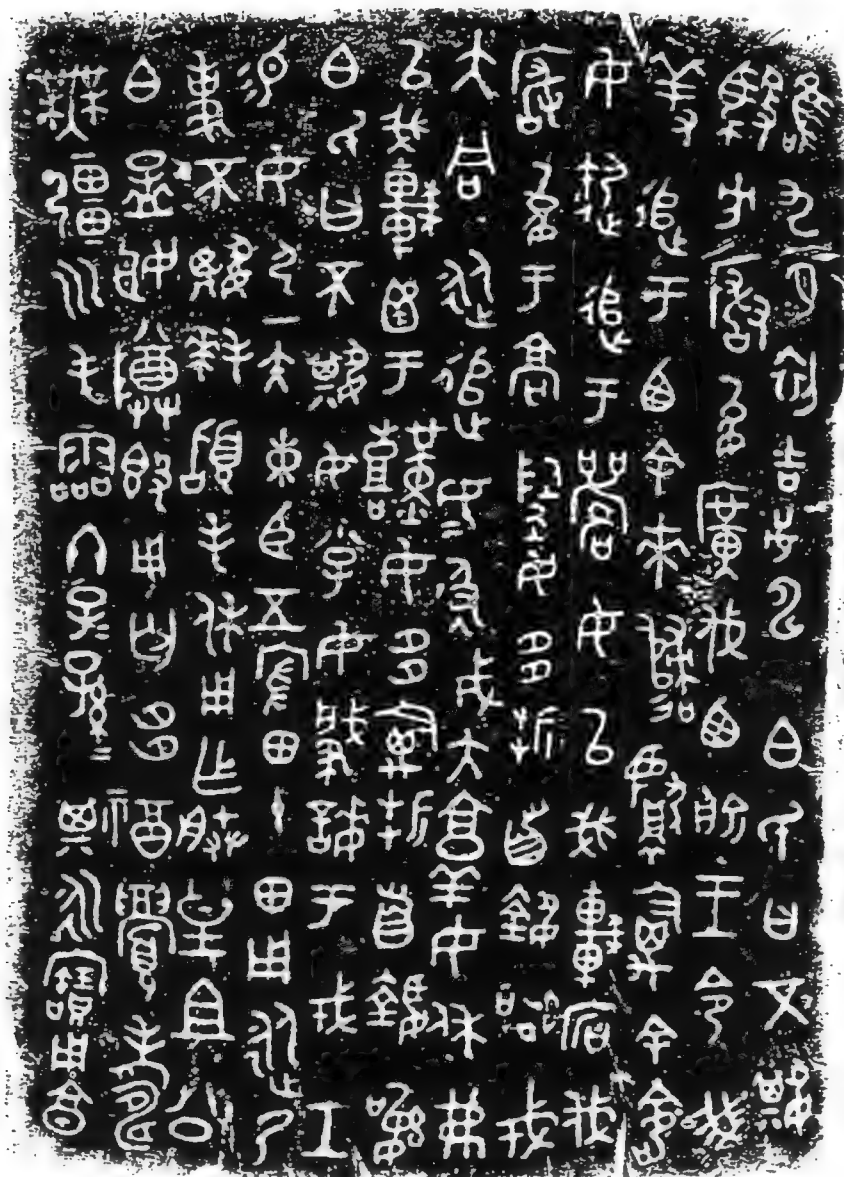 唯九月初吉戊申白氏曰不𡢁
馭方厰允廣伐西俞王令我
羞追于西余來歸獻禽余命
女御追于䣙女以我車宕伐
厰允于高陶女多折首執訊戎
大同永追女=及戎大敦女休弗
以我車函于艱女多禽折首執訊
白氏曰不𡢁女小子女肇誨于戎工
易女弓一矢束臣五家田十田用永乃
事不𡢁拜稽手休用乍朕皇且公
白孟姬尊簋用匄多福眉壽
無疆永屯霝冬子=孫=其永寶用享